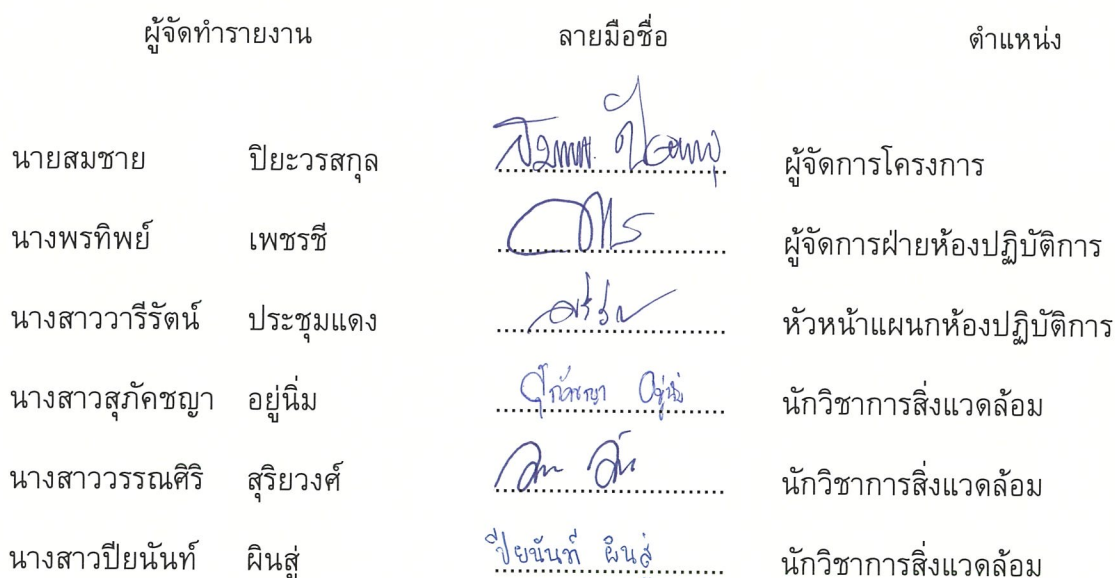 ผู้จัดทำรายงาน ลายมือชื่อ ตำแหน่ง
นายสมชาย ปิยะวรสกุล ผู้จัดการโครงการ
นางพรทิพย์ เพชรชี ผู้จัดการฝ่ายห้องปฏิบัติการ
นางสาววารีรัตน์ ประชุมแดง หัวหน้าแผนกห้องปฏิบัติการ
นางสาวสุภัคชญา อยู่นิ่ม สุภัคชญา อยู่นิ่ม นักวิชาการสิ่งแวดล้อม
นางสาววรรณศิริ สุริยวงศ์ นักวิชาการสิ่งแวดล้อม
นางสาวปิยนันท์ ผินสู่ ปิยนันท์ ผินสู่ นักวิชาการสิ่งแวดล้อม